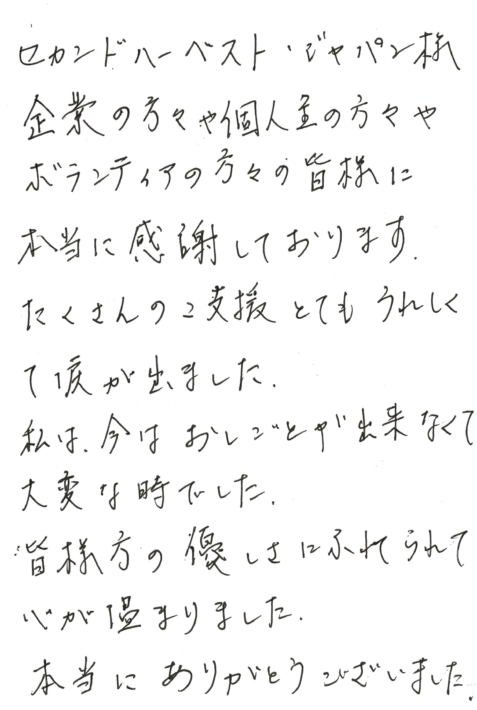 セカンドハーベスト・ジャパン様
企業の方々や個人主の方々や
ボランティアの方々の皆様に
本当に感謝しております。
たくさんのご支援とてもうれしく
て涙が出ました。
私は、今はおしごとが出来なくて
大変な時でした。
皆様方の優しさにふれてられて
心が温まりました。
本当にありがとうございました。